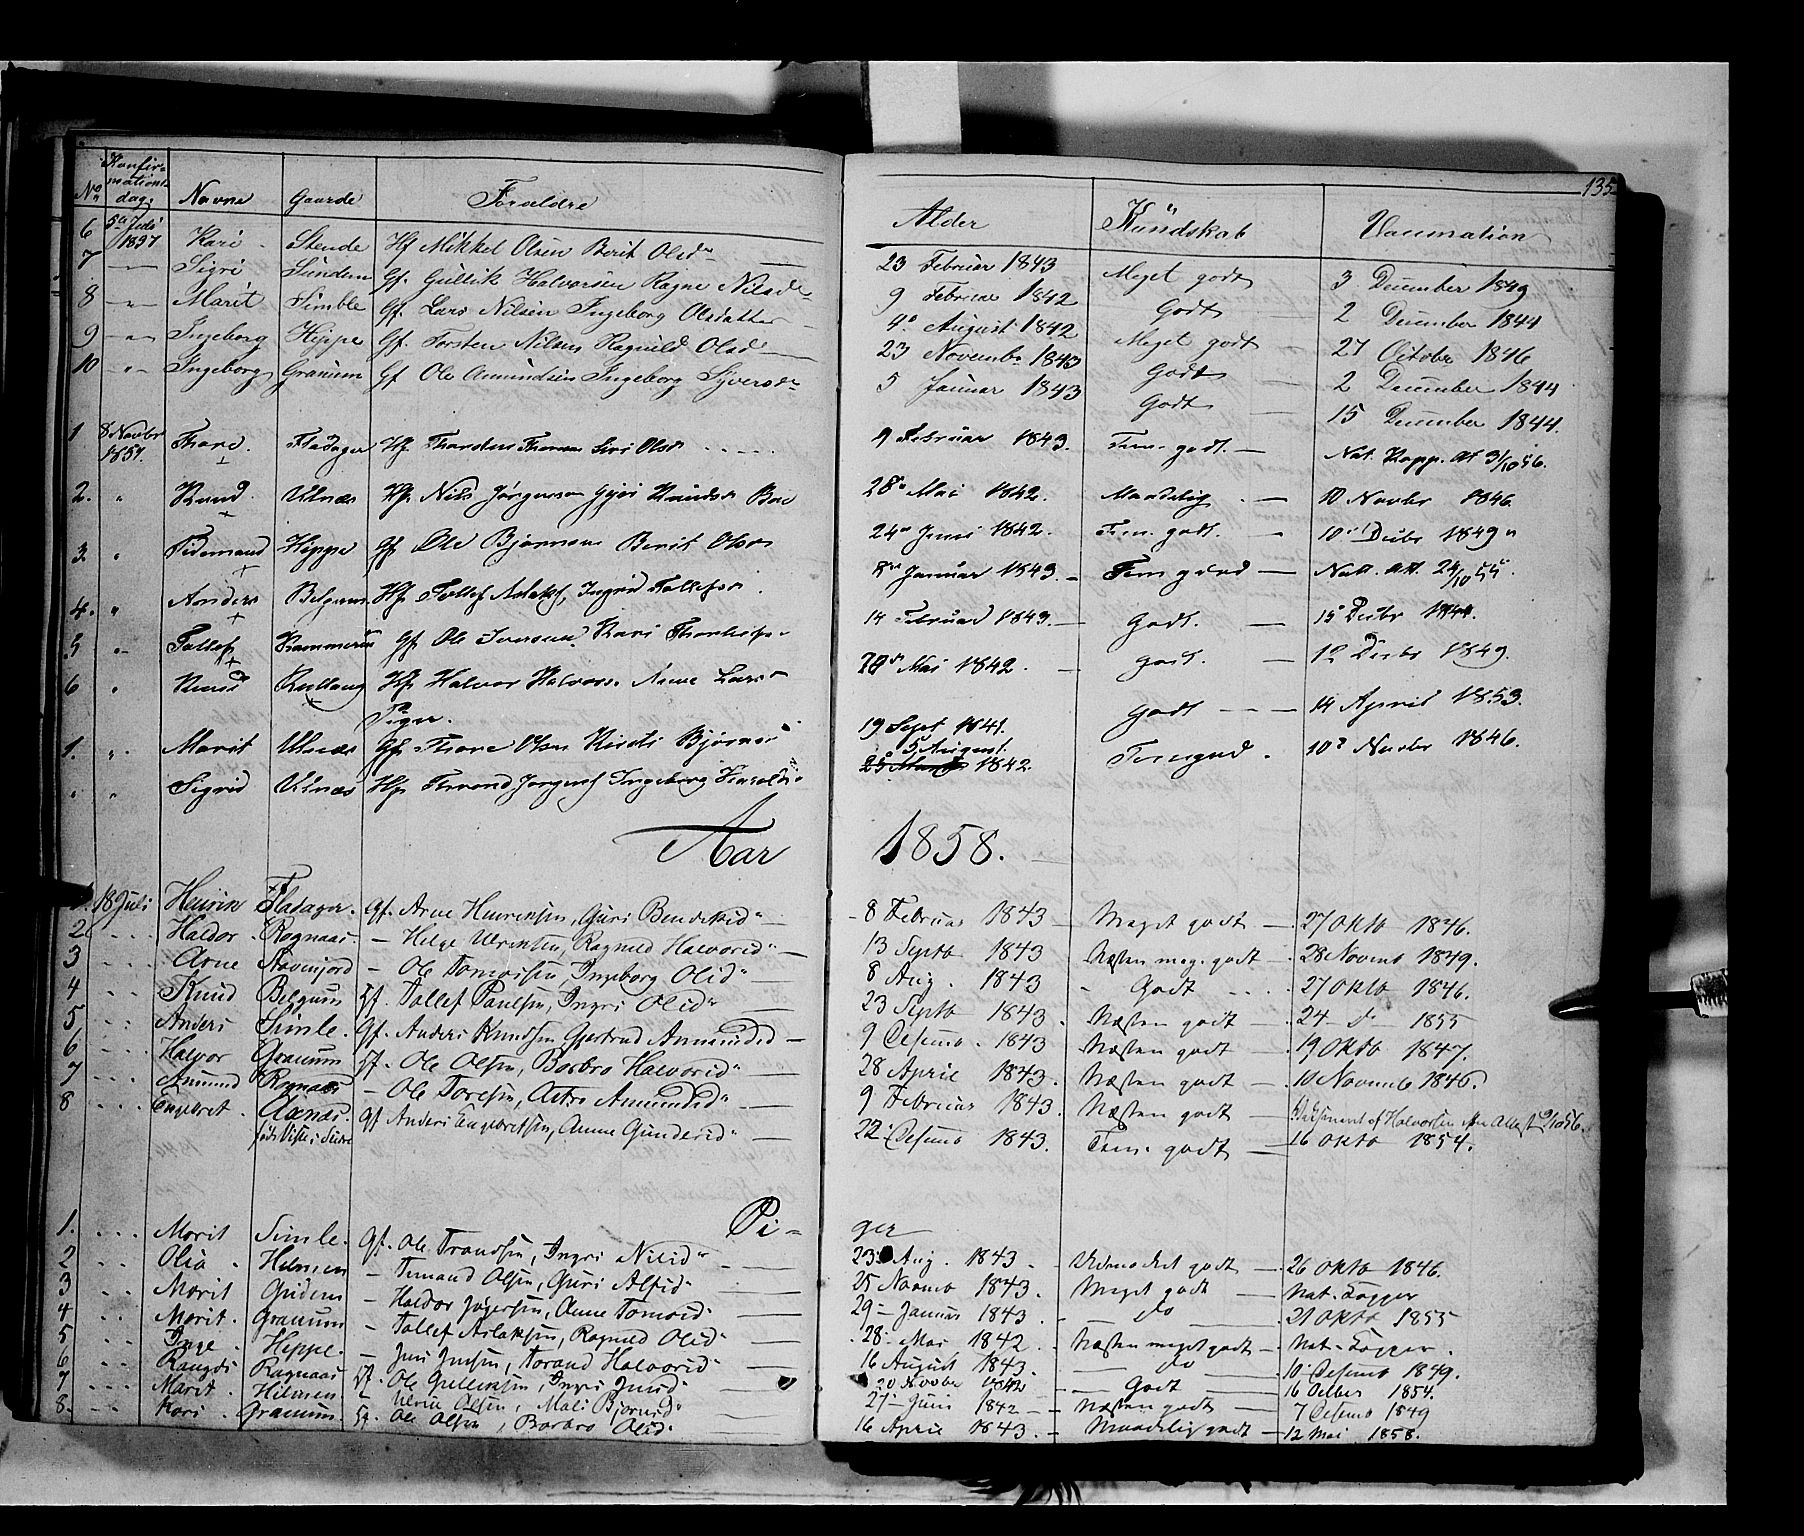 135
No Konfirmations dag. Navne Gaarde Forældre Alder Kundskab Vaccination
6 5te Juli 1857 Kari Stende Hf Mikkel Olsen Berit Olsd 23 Februar 1843 Meget godt 3 December 1849
7 Sigri Sundem Gf. Gullik Halvorsen Ragne Nilsd 9 Februar 1842 Godt 2 December 1844
8 Marit Simble Gf. Lars Nilsen Ingeborg Olsdatter 4de August 1842 Meget godt 27 October 1846
9 Ingeborg Hippe Gf. Torsten Nilsen Ragnild Olsd 23 Novembr 1843 Godt 2 December 1844
10 Ingeborg Granum Gf Ole Amundsen Ingeborg Syversd 5 Januar 1843 Godt 15 December 1844.
1 8 Novbr 1857. Thore Fladager Hf. Thorsten Thoresen Siri Olsd 9 Februar 1843. Tem. godt. Nat. Kopp. Att 3/10 56.
2. Knud Ulnæs Hf. Niels Jørgensen Gjøri Knudsd 28 Mai 1842. Maadelig 10 Novbr 1846.
3. Tidemand Hippe Gf. Ole Bjørnsen Berit Olsd 24 Juni 1842. Tem. godt. 10 Decbr 1849
4. Anders Belgum Hf. Tollef Aslaks, Ingrid Tollefsd 8 Januar 1843. Tem god Nat. Att. 24/10 55.
5 Tollef Kammerud Gf. Ole Iversen Kari Thorleifsd 14 Februar 1843. Godt. 15 Decbr 1844.
6 Knud Rullang Hf Halvor Halvors. Anne Larsd Mai 1842. godt. 12 Decbr 1849.
Piger.
1. Marit Ulnæs Gf. Thore Olsen Kirsti Bjørnsd 19 Sept 1841. Godt 14 April 1853.
Sigrid Ulnæs Hf. Tromond Jørgens Ingeborg Haralds 5 August. 1842. Temgod. 10 Novbr 1846.
Aar 1858.
1. 18 Juli Heinrik Fladager. Gf. Arne Henriksen, Guri Bendiksd 8 Februar 1843 Meget godt 27 Oktb 1846.
2 Haldor Rognaas. Helge Ulriksen, Ragnild Halvorsd 13 Septb 1843 Næsten meg. godt 28 Novemb 1849.
3 Arne Ole Tomassen, Ingeborg Olsd 8 Aug. 1843 Godt 27 Oktb 1846.
4 Knud Belgum Hf. Tollef Paulsen, Ingri Olsd 23 Septb 1843. Næsten godt 24 D 1855
5 Anders Simle. Gf. Anders Knudsen Gjertrud Amundsd 9 Desemb. 1843 Næsten godt 19 Oktb 1847.
6 Halvor Granum Hf. Ole Olsen, Barbro Halvorsd 28 April 1843. Næsten godt 10 Novemb 1846.
7 Amund Rognaas Ole Toresen, Astri Amundsd 9 Februar 1843. Næsten godt Vaksineret af Halvorsen efter Attest 9/10 56.
8 Engebret. Ulnæs. Gf Anders Engebretsen, Anne Gundersd 22 Desemb 1843. Tem. godt 16 Oktb 1854.
Piger
1. Marit Simle. Gf. Ole Trondsen, Ingri Nilsd 23 Aug. 1843 Udmerket godt 26 Oktb 1846.
2 Olia Hilmen Temand Olsen, Guri Alfsd 25 Novmb 1843. Meget godt Nat. Kopper
3 Marit Gridem Haldor Jøgersen, Anne Tomasd 29 Januar 1843. do 21 Oktb 1855
4 Marit. Granum Tollef Aslaksen, Ragnild Olsd 28 Mai 1842 Næsten meget godt Nat. Kopper.
5 Inge Hippe. Jens Jensen, Torand Halvorsd 16 August 1843. do 10 Desemb 1849.
6 Rangdi Rognaas Hf. Ole Gulliksen, Ingri Jensd 20 Novbr 1842 Godt 16 Octbr 1854.
7 Marit. Hilmen. Ulrik Olsen, Mali Bjørnsd 27 Juni 1842 Næsten godt 7 Desemb 1849
8. Kari Granum. Hf. Ole Olsen, Barbro Olsd 16 April 1843. Maadelig godt 12 Mai 1858.